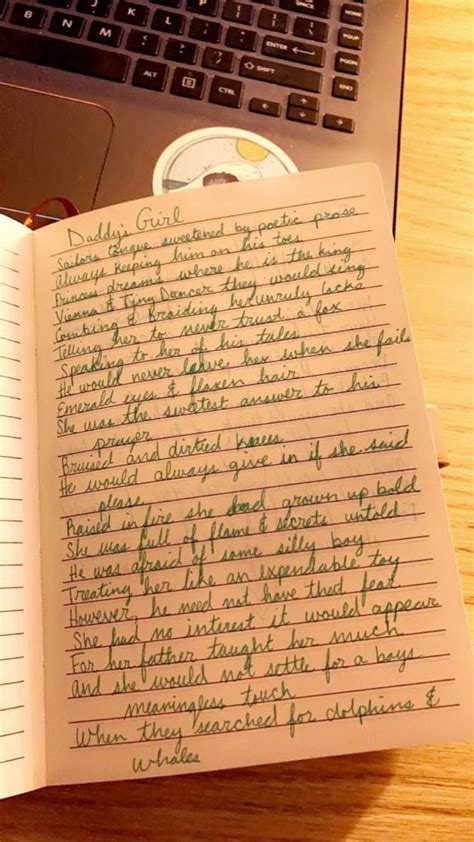 PRTSC
HOME
PGUP
PGDN
END
ENTER
SHIFT
ALT
CTRL
Daddy's Girl
Sailors tongue sweetened by poetic prose
Always keeping him on his toes
Princess dreams where he is the king
Vienna & Tiny Dancer they would sing
Combing & Braiding her unruly locks
Telling her to never trust a fox
Speaking to her of his tales
He would never leave her when she fails
Emerald eyes & flaxen hair
She was the sweetest answer to his
prayer
Bruised and dirtied knees
He would always give in if she said
please
Raised in fire she had grown up bold
She was full of flame & secrets untold
He was afraid of some silly boy
Treating her like an expendable toy
However, he need not have fear
She had no interest it would appear
For her father taught her much
And she would not settle for a boys
meaningless touch
When they searched for dolphins &
whales